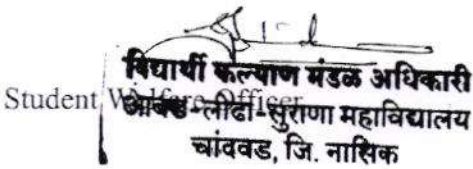 विद्यार्थी कल्याण मंडळ अधिकारी
Student Welfare Officer
आबड-लोढा-सुराणा महाविद्यालय
चांदवड, जि. नासिक